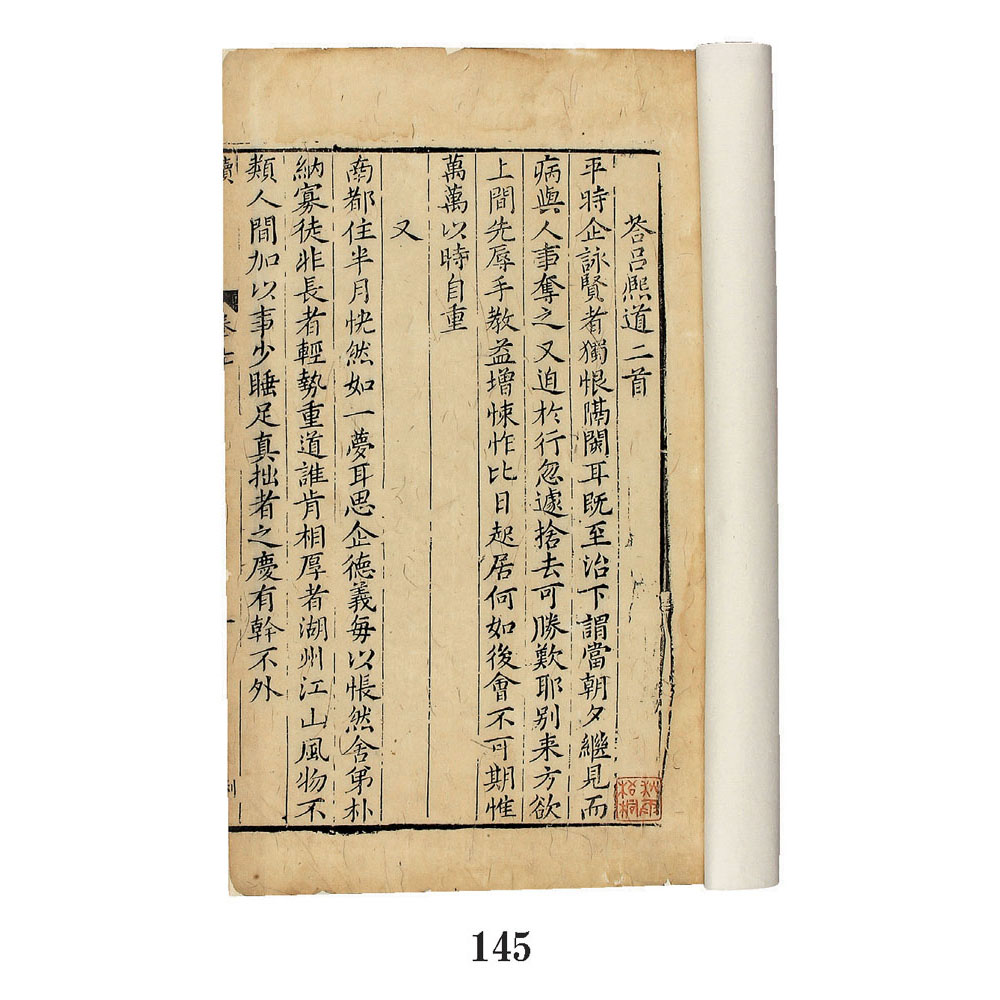 荅吕熈道二首
平時企詠賢者獨恨隔闊耳既至治下謂當朝夕繼見而
病與人事奪之又迫於行忽遽捨去可勝歎耶别来方欲
上間先辱手教益增悚怍比日起居何如後會不可期惟
萬萬以時自重
又
南都住半月怏然如一夢耳思企德義每以悵然舍弟朴
納寡徒非長者輕勢重道誰肯相厚者湖州江山風物不
類人間加以事少睡足真拙者之慶有幹不外
卷七
145